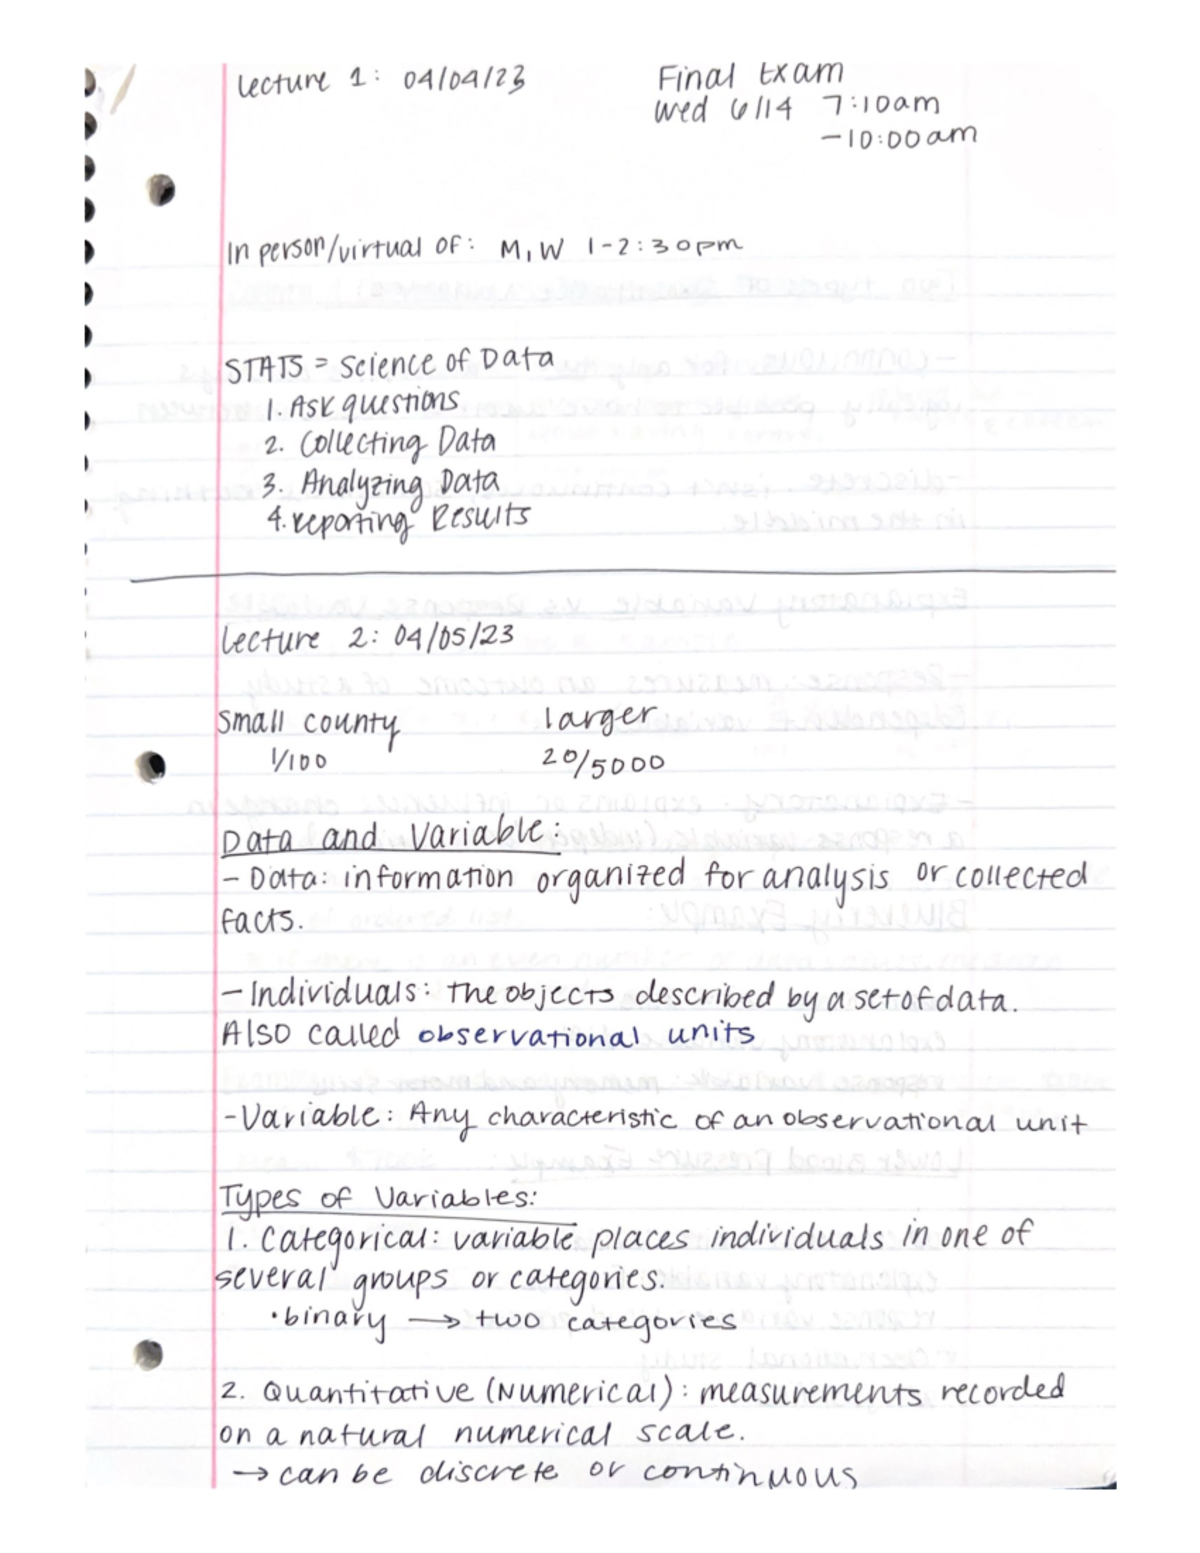 Lecture 1: 04/04/23
Final Exam
Wed 6/14 7:10am
-10:00am
In person/virtual OF: M, W 1-2:30pm
STATS = Science of Data
1. Ask questions
2. Collecting Data
3. Analyzing Data
4. reporting Results
Lecture 2: 04/05/23
Small county larger
1/100 20/5000
Data and Variable:
- Data: information organized for analysis or collected
facts.
- Individuals: The objects described by a set of data.
Also called observational units
- Variable: Any characteristic of an observational unit
Types of Variables:
1. Categorical: variable places individuals in one of
several groups or categories.
• binary → two categories
2. Quantitative (Numerical): measurements recorded
on a natural numerical scale.
→ can be discrete or continuous